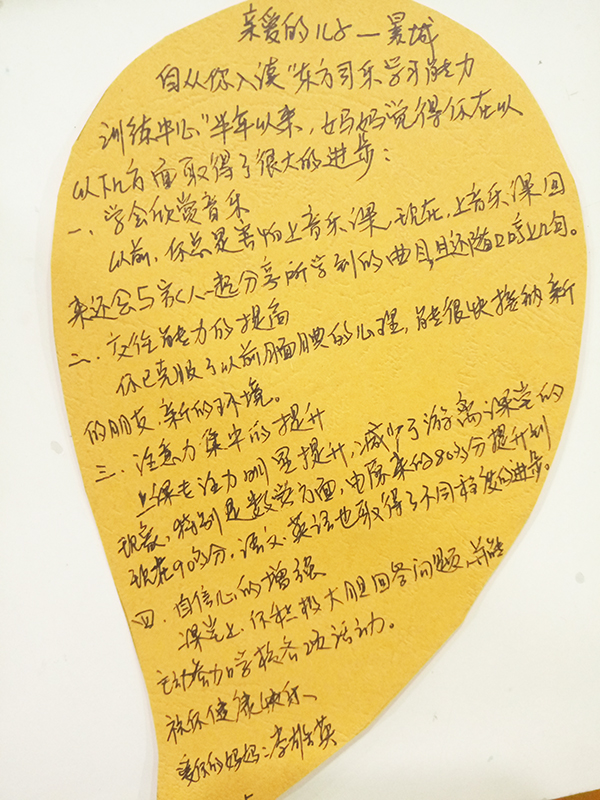 亲爱的儿子—景城
自从你入读"东方司乐学习能力
训练中心"半年以来，妈妈觉得你在以
以下几方面取得了很大的进步：
一、学会欣赏音乐
以前，你总是害怕上音乐课，现在，上音乐课回
来还会与家人一起分享所学到的曲目，且还随口哼上几句。
二、交往能力的提高
你已克服了以前腼腆的心理，能很快接纳新
的朋友、新的环境。
三、注意力集中的提升
上课专注力明显提升，减少了游离课堂的
现象，特别是数学方面，由原来的80多分提升到
现在90多分，语文、英语也取得了不同程度的进步。
四、自信心的增强
课堂上，你积极大胆回答问题，并能
主动参加学校各项活动。
祝你健康快乐、
爱你的妈妈：李雄英